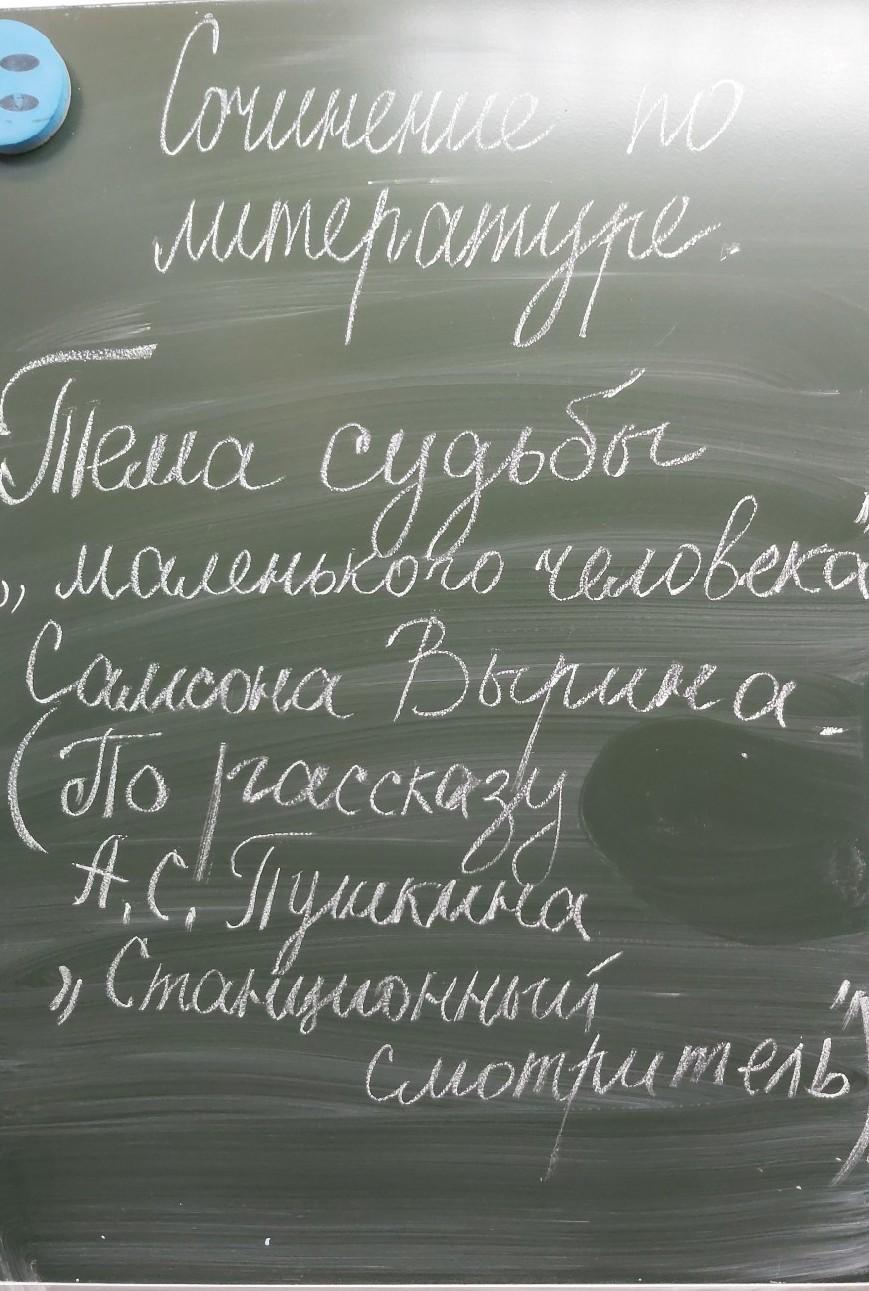 Сочинение по
литературе.
Тема судьбы
„маленького человека"
Самсона Вырина.
(По рассказу
А.С. Пушкина
„Станционный
смотритель")